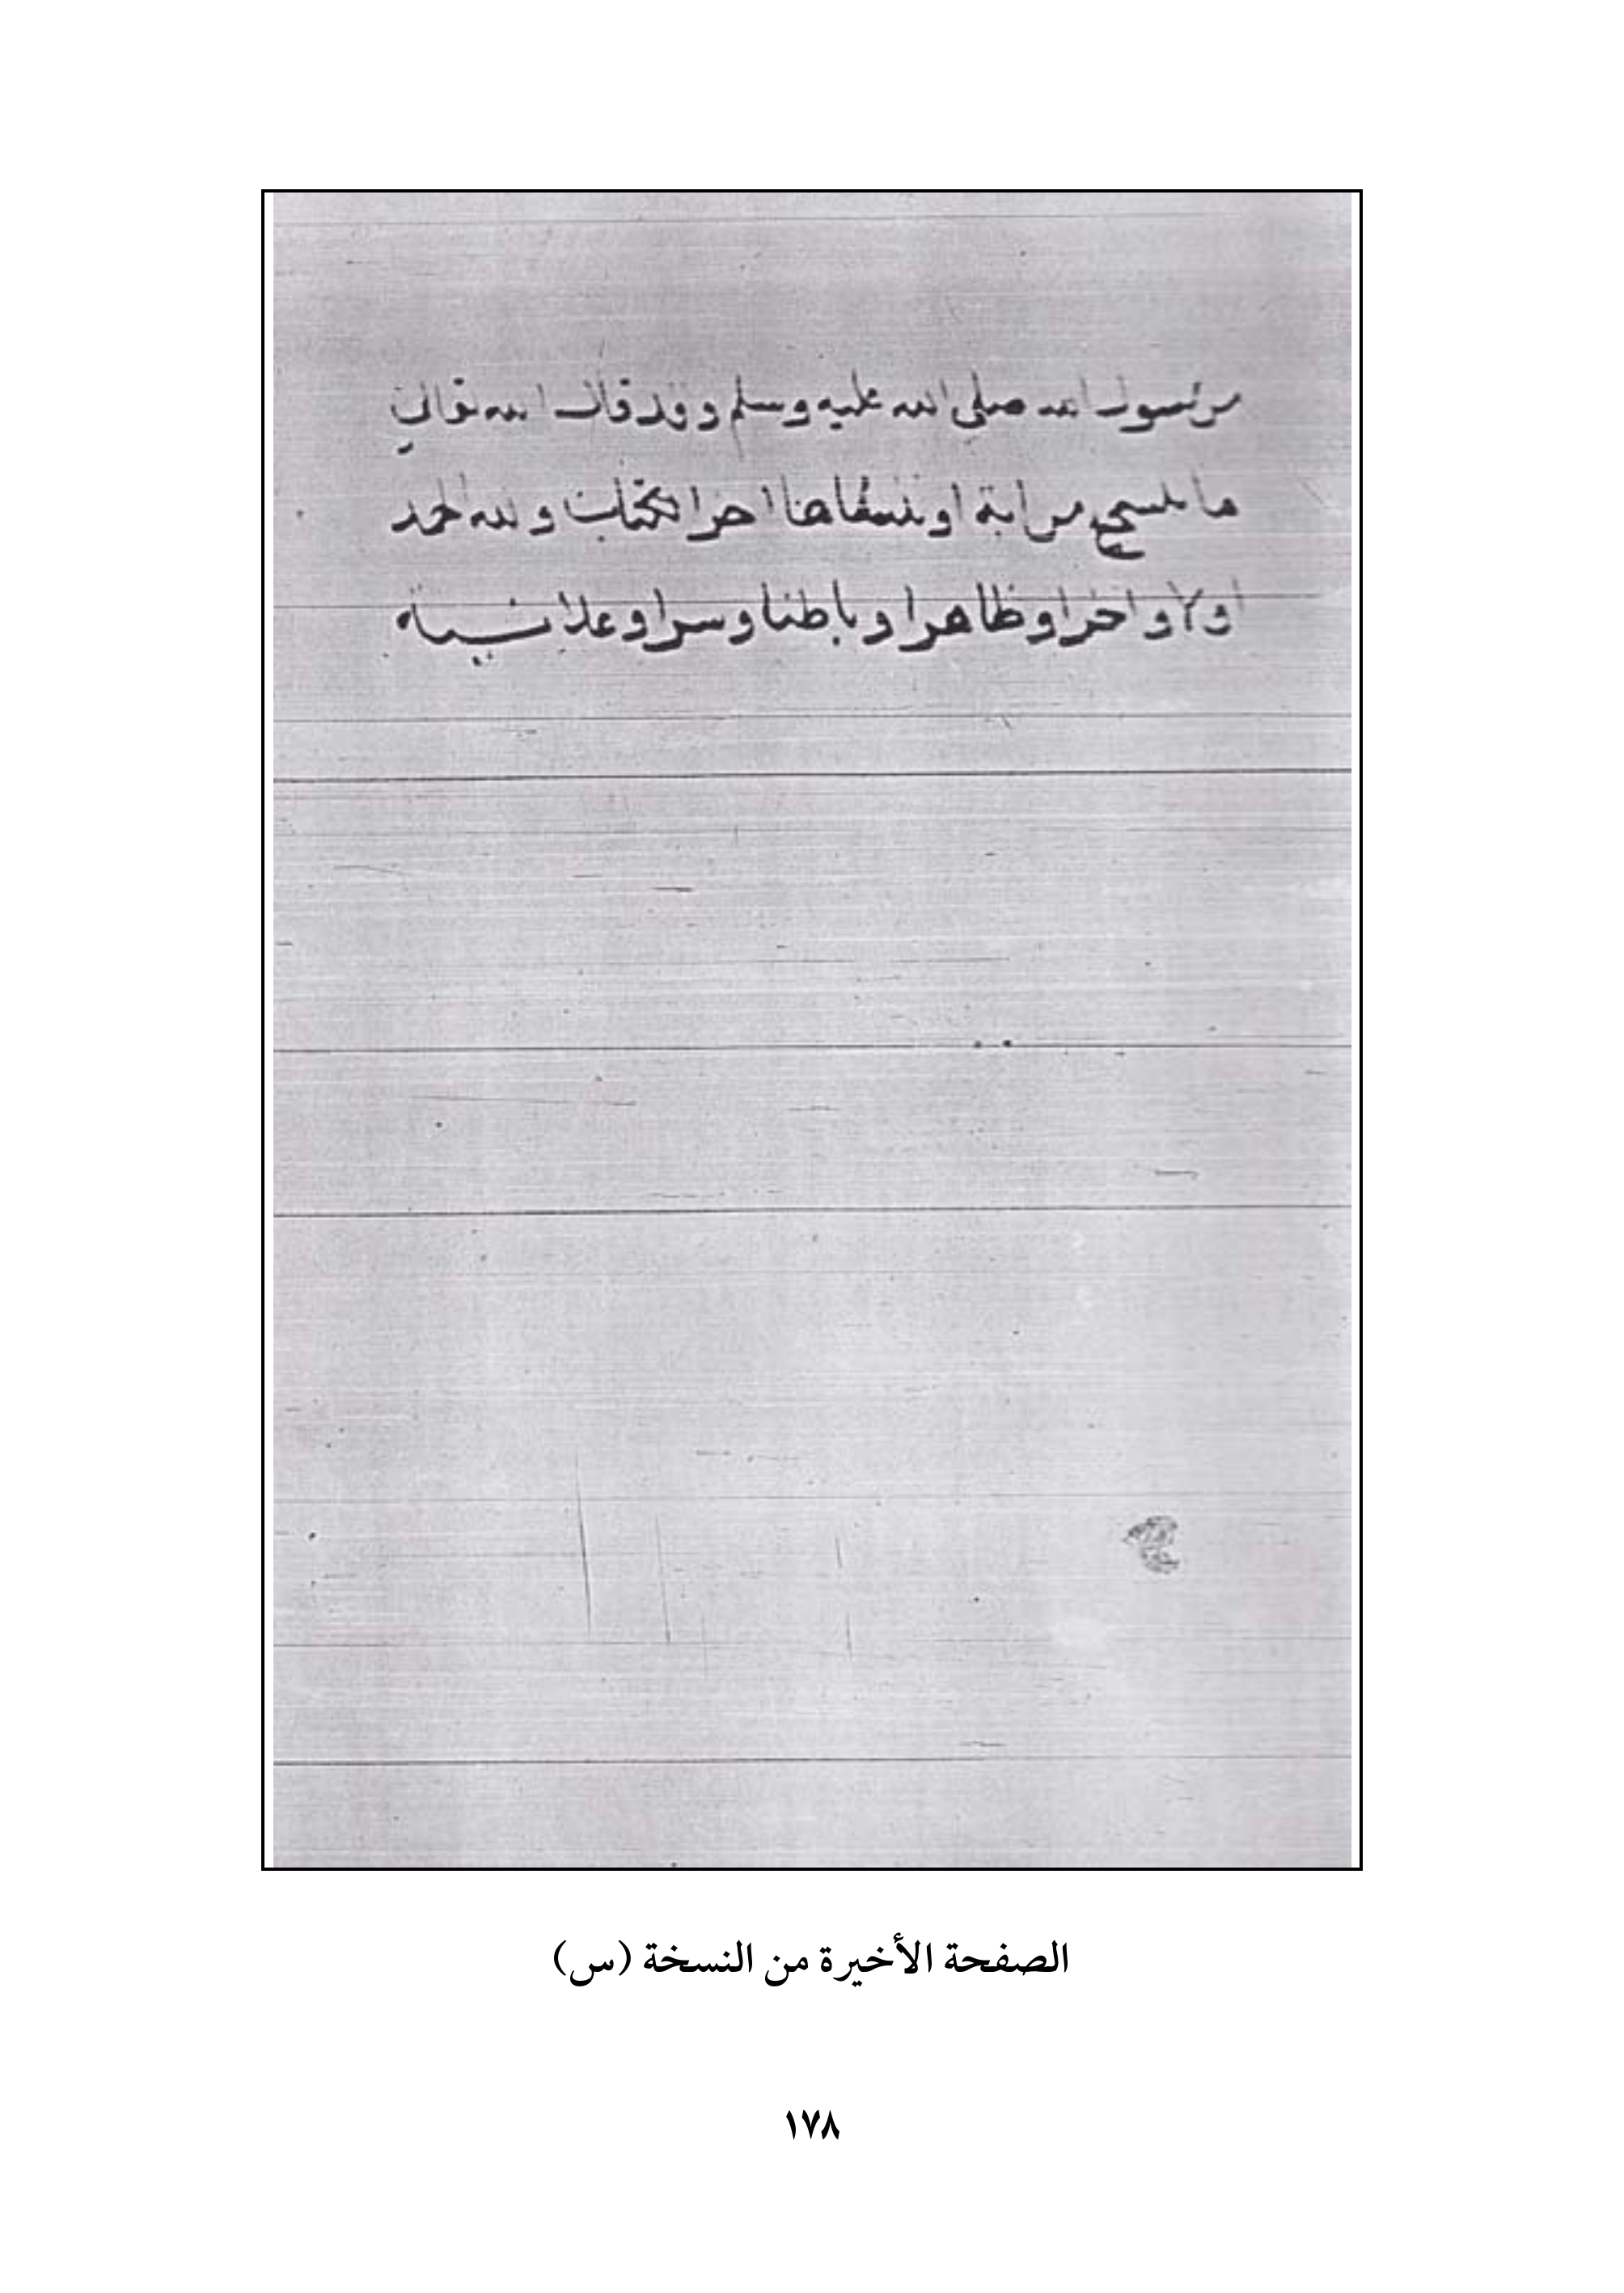 من رسول الله صلى الله عليه وسلم وقد قال الله تعالى
ما ننسخ من اية او ننسفاها اخر الكتاب ولله الحمد
اولا واخرا وظاهرا وباطنا وسرا وعلانية
الصفحة الأخيرة من النسخة (س)
١٧٨